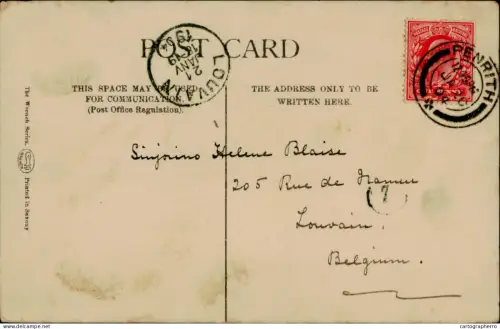 POST CARD
THIS SPACE MAY BE USED
FOR COMMUNICATION.
(Post Office Regulation).
THE ADDRESS ONLY TO BE
WRITTEN HERE.
LOUVAIN
21
JANV
1904
PENRITH
Sinjorino Helene Blaise
205 Rue de Namur
7
Louvain
Belgium.
The Wrench Series,
Printed in Saxony
cartographerro | Delcampe.net